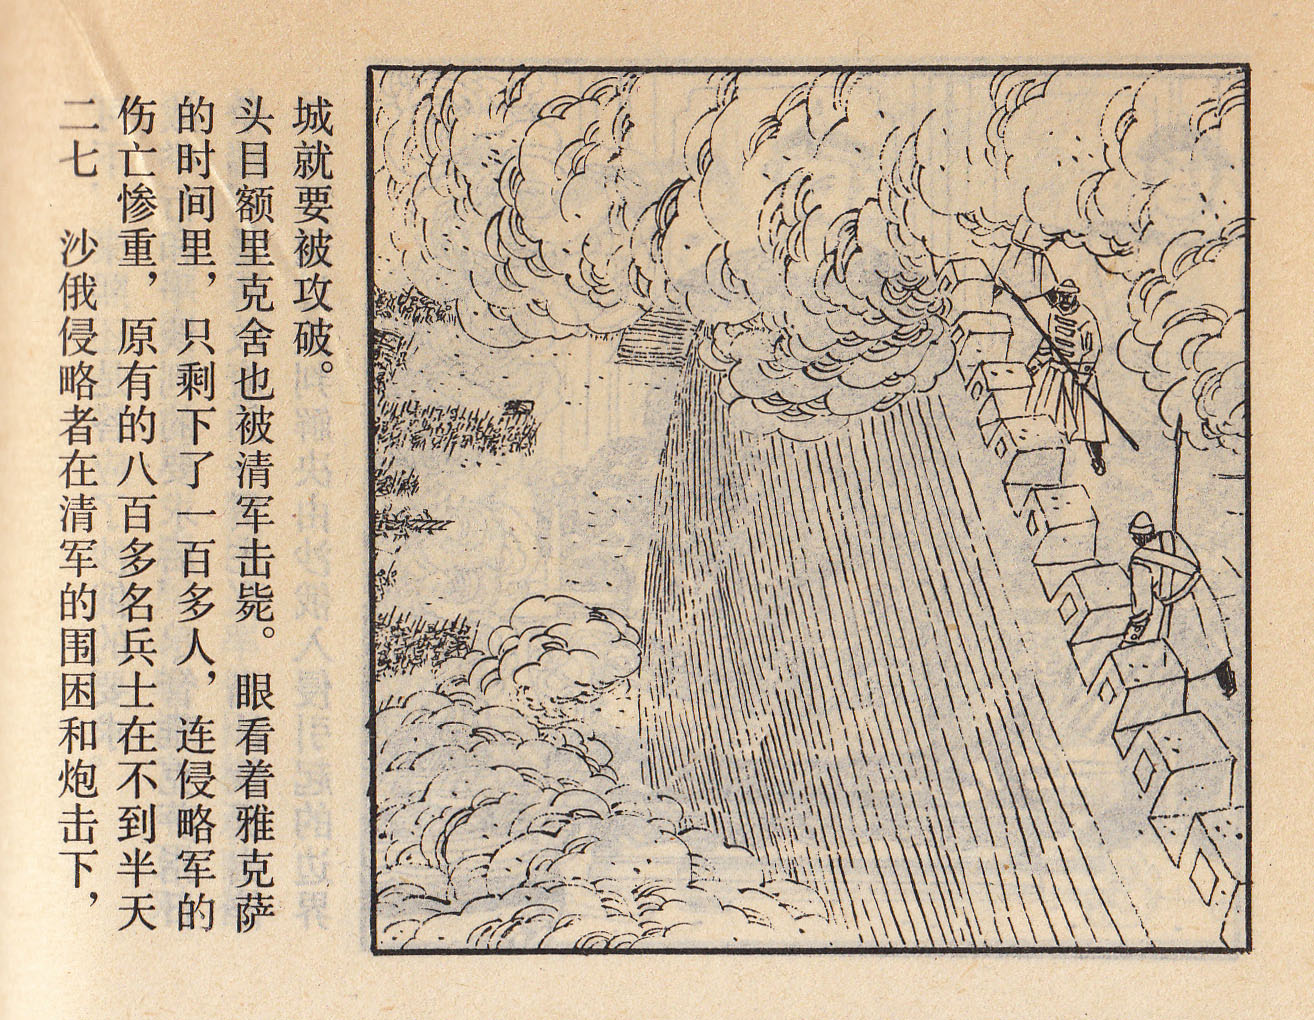 二七　沙俄侵略者在清军的围困和炮击下，
伤亡惨重，原有的八百多名兵士在不到半天
的时间里，只剩下了一百多人，连侵略军的
头目额里克舍也被清军击毙。眼看着雅克萨
城就要被攻破。